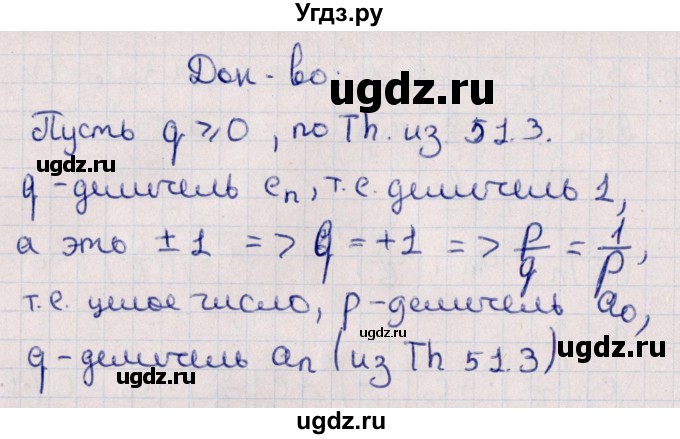 Угдз.ру
Док-во:
ugdz.ru
Пусть q ⩾ 0, по Th. из 51.3.
ugdz.ru ugdz.ru
q-делитель en, т.е. делитель 1,
а это ±1 => q = +1 => p/q = 1/p,
т.е. целое число, p-делитель a₀,
ugdz.ru
q-делитель an (из Th 51.3)
ugdz.ru ugdz.ru
ugdz.ru